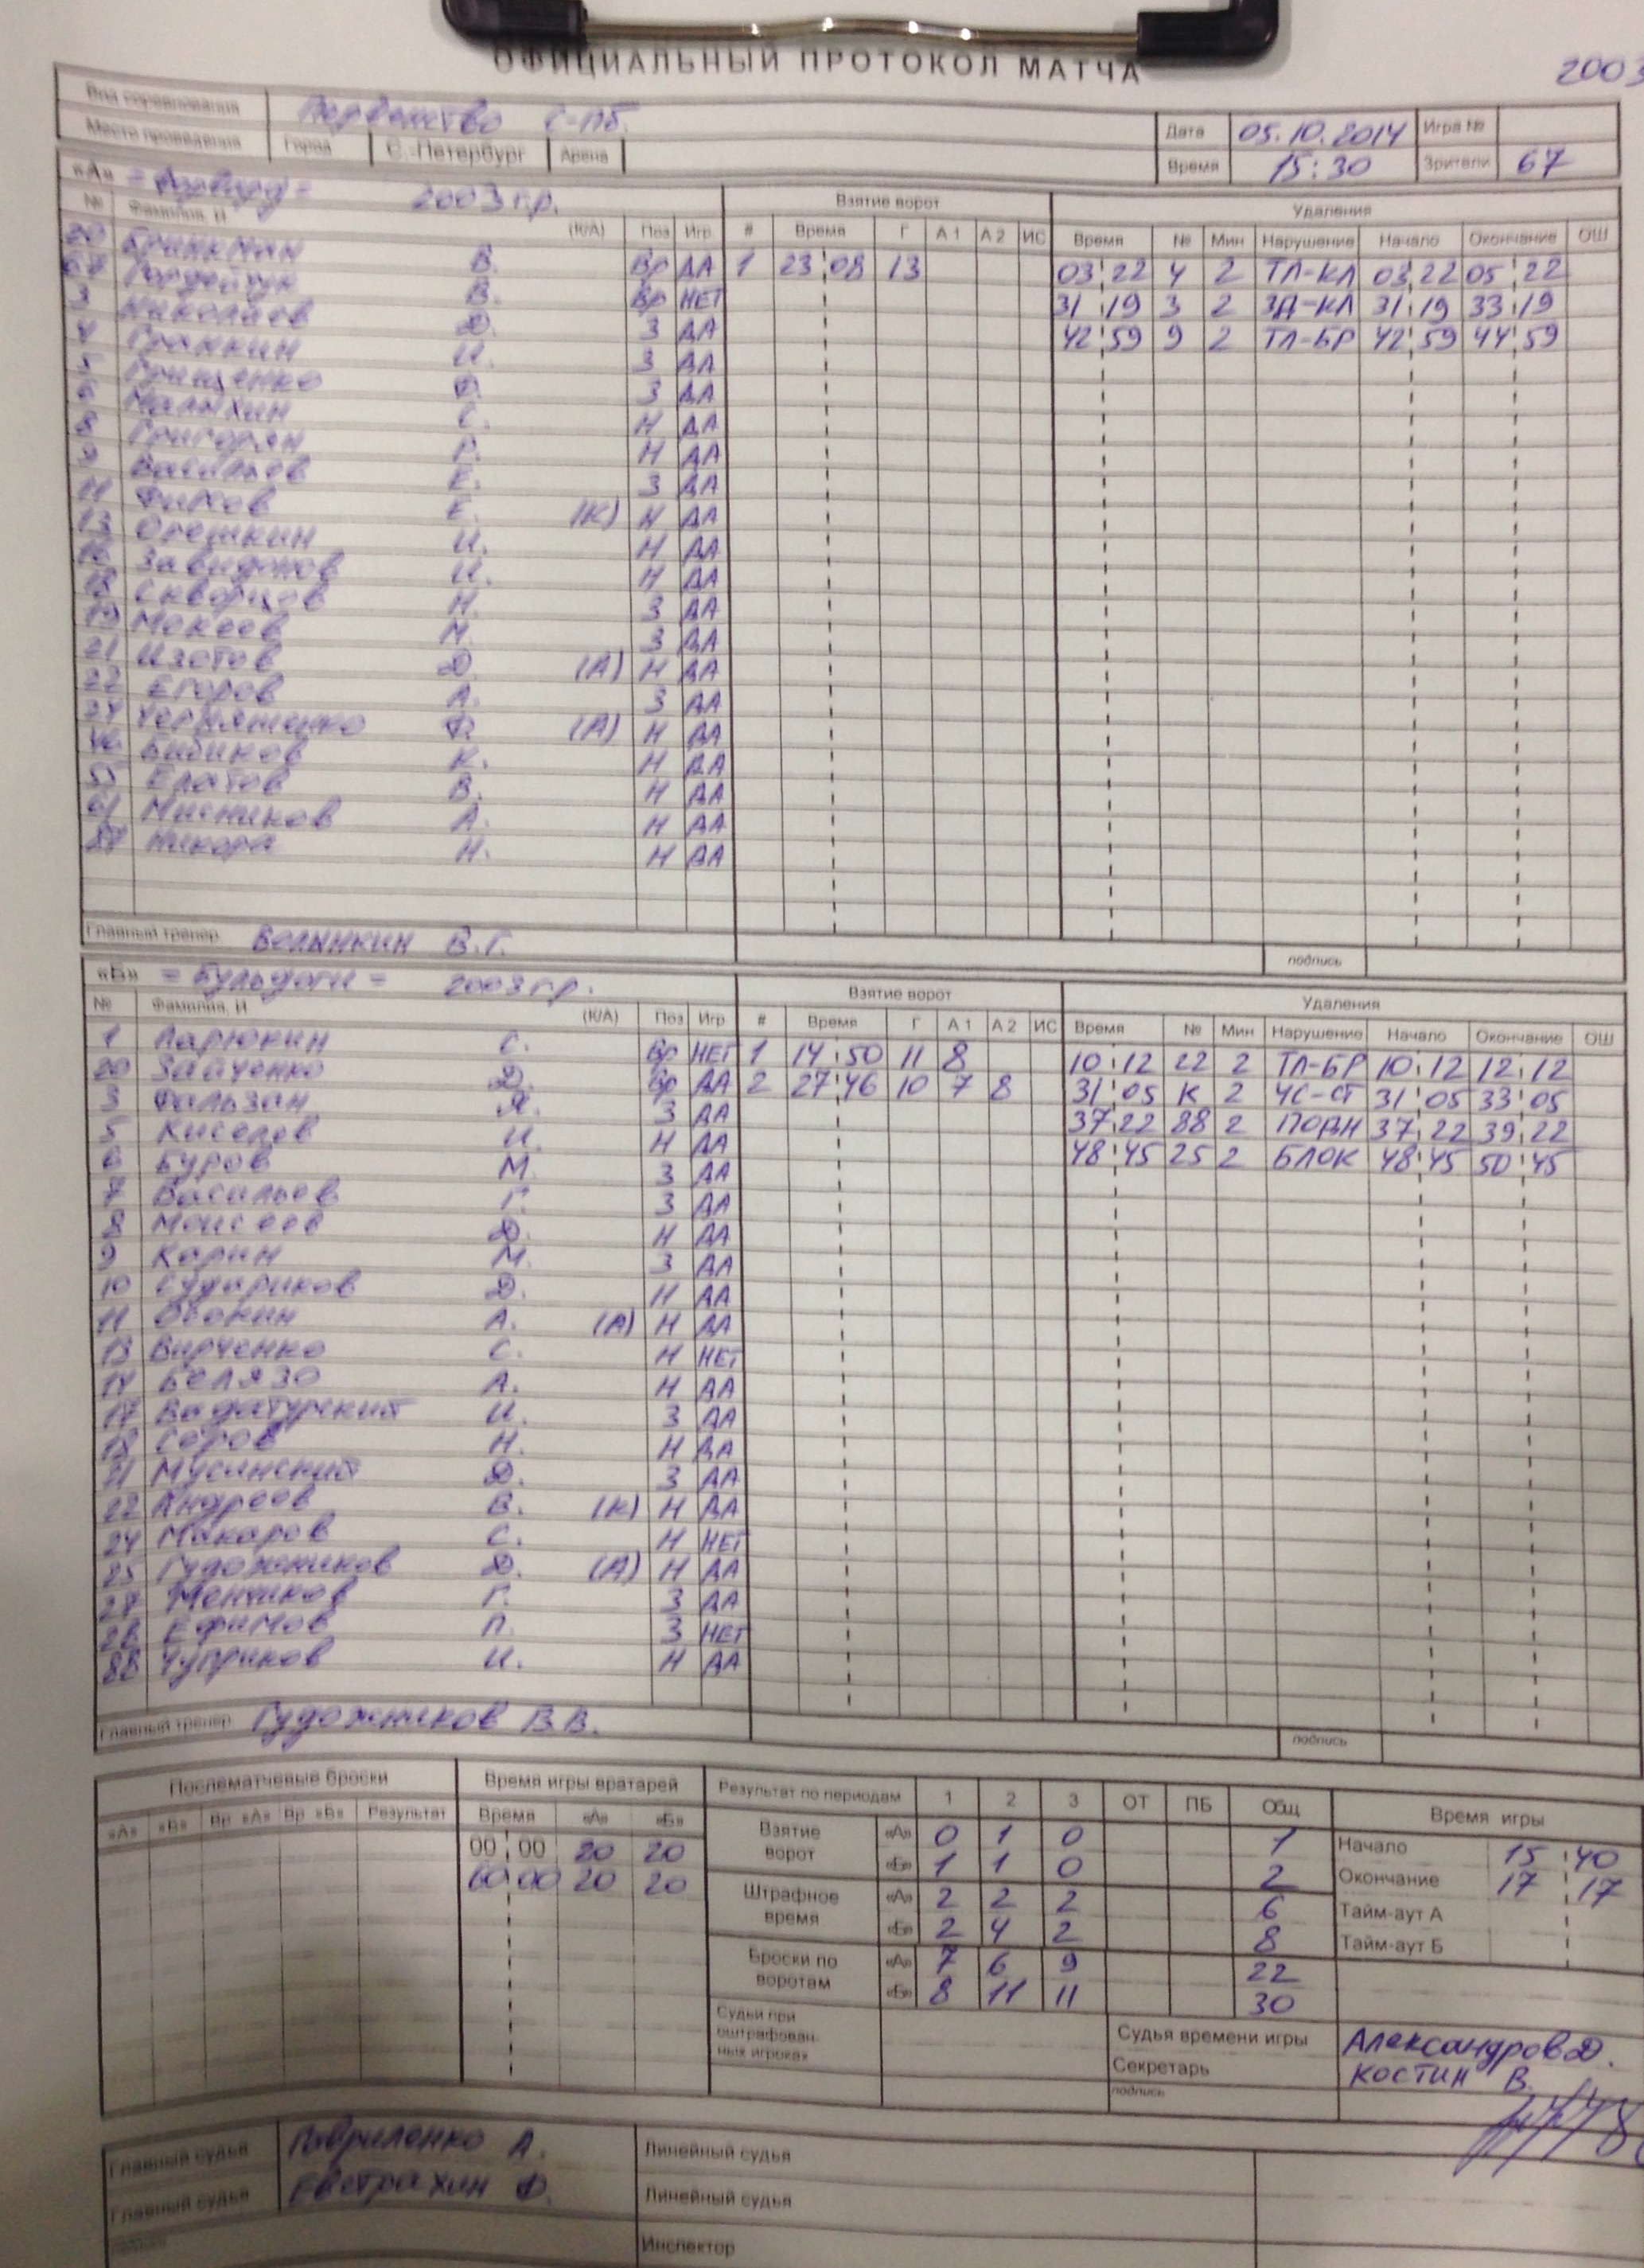 ОФИЦИАЛЬНЫЙ ПРОТОКОЛ МАТЧА
2003
Вид соревнования Первенство С-Пб. Дата 05.10.2014 Игра №
Место проведения Город С.-Петербург Арена Время 15:30 Зрители 67
«А» 2003 г.р. Взятие ворот Удаления
№ Фамилия, И (К/А) Поз Игр # Время Г А1 А2 ИС Время № Мин Нарушение Начало Окончание ОШ
20 Бринкман В. Вр ДА 1 23:08 13 03:22 4 2 ТЛ-КЛ 03:22 05:22
В. Вр НЕТ 31:19 3 2 ЗД-КЛ 31:19 33:19
3 Николаев Д. З ДА 42:59 9 2 ТЛ-БР 42:59 44:59
4 И. З ДА
5 Грищенко З ДА
6 Малыхин С. Н ДА
8 Григорян Р. Н ДА
9 Васильев Е. З ДА
11 Е. (К) Н ДА
13 Олешкин И. Н ДА
И. Н ДА
18 Скворцов Н. З ДА
19 Мокеев М. З ДА
21 Изотов Д. (А) Н ДА
22 Егоров А. З ДА
(А) Н ДА
Бибиков К. Н ДА
55 Елатов В. Н ДА
61 Мисников А. Н ДА
Никора Н. Н ДА
Главный тренер Велынкин В.Г.
подпись
«Б» = Бульдоги = 2003 г.р. Взятие ворот Удаления
№ Фамилия, И (К/А) Поз Игр # Время Г А1 А2 ИС Время № Мин Нарушение Начало Окончание ОШ
1 Ларюкин С. Вр НЕТ 1 14:50 11 8 10:12 22 2 ТЛ-БР 10:12 12:12
20 Зайченко Д. Вр ДА 2 27:46 10 7 8 31:05 К 2 ЧС-СТ 31:05 33:05
3 Фальзан Я. З ДА 37:22 88 2 ПОДН 37:22 39:22
5 Киселев И. Н ДА 48:45 25 2 БЛОК 48:45 50:45
6 Буров М. З ДА
7 Васильев Г. З ДА
8 Моисеев Д. Н ДА
9 Карин М. З ДА
10 Судариков Д. Н ДА
11 Осокин А. (А) Н ДА
13 Вирченко С. Н НЕТ
14 Белязо А. Н ДА
17 Вадатурский И. З ДА
18 Серов Н. Н ДА
21 Мусинский Д. З ДА
22 Андреев В. (К) Н ДА
24 Макаров С. Н НЕТ
25 Гудожников Д. (А) Н ДА
27 Менчиков Г. З ДА
28 Ефимов П. З НЕТ
88 Чуприков И. Н ДА
Главный тренер Гудожников В.В.
подпись
Послематчевые броски Время игры вратарей Результат по периодам 1 2 3 ОТ ПБ Общ Время игры
«А» «Б» Вр «А» Вр «Б» Результат Время «А» «Б»
Взятие ворот «А» 0 1 0 1 Начало 15:40
00:00 20 20 «Б» 1 1 0 2 Окончание 17:17
60:00 20 20 Штрафное время «А» 2 2 2 6 Тайм-аут А
«Б» 2 4 2 8 Тайм-аут Б
Броски по воротам «А» 7 6 9 22
«Б» 8 11 11 30
Судьи при оштрафованных игроках Судья времени игры Александров Д.
Секретарь Костин В.
подпись
Главный судья Гавриленко А. Линейный судья
Главный судья Евстрахин Ф. Линейный судья
Инспектор